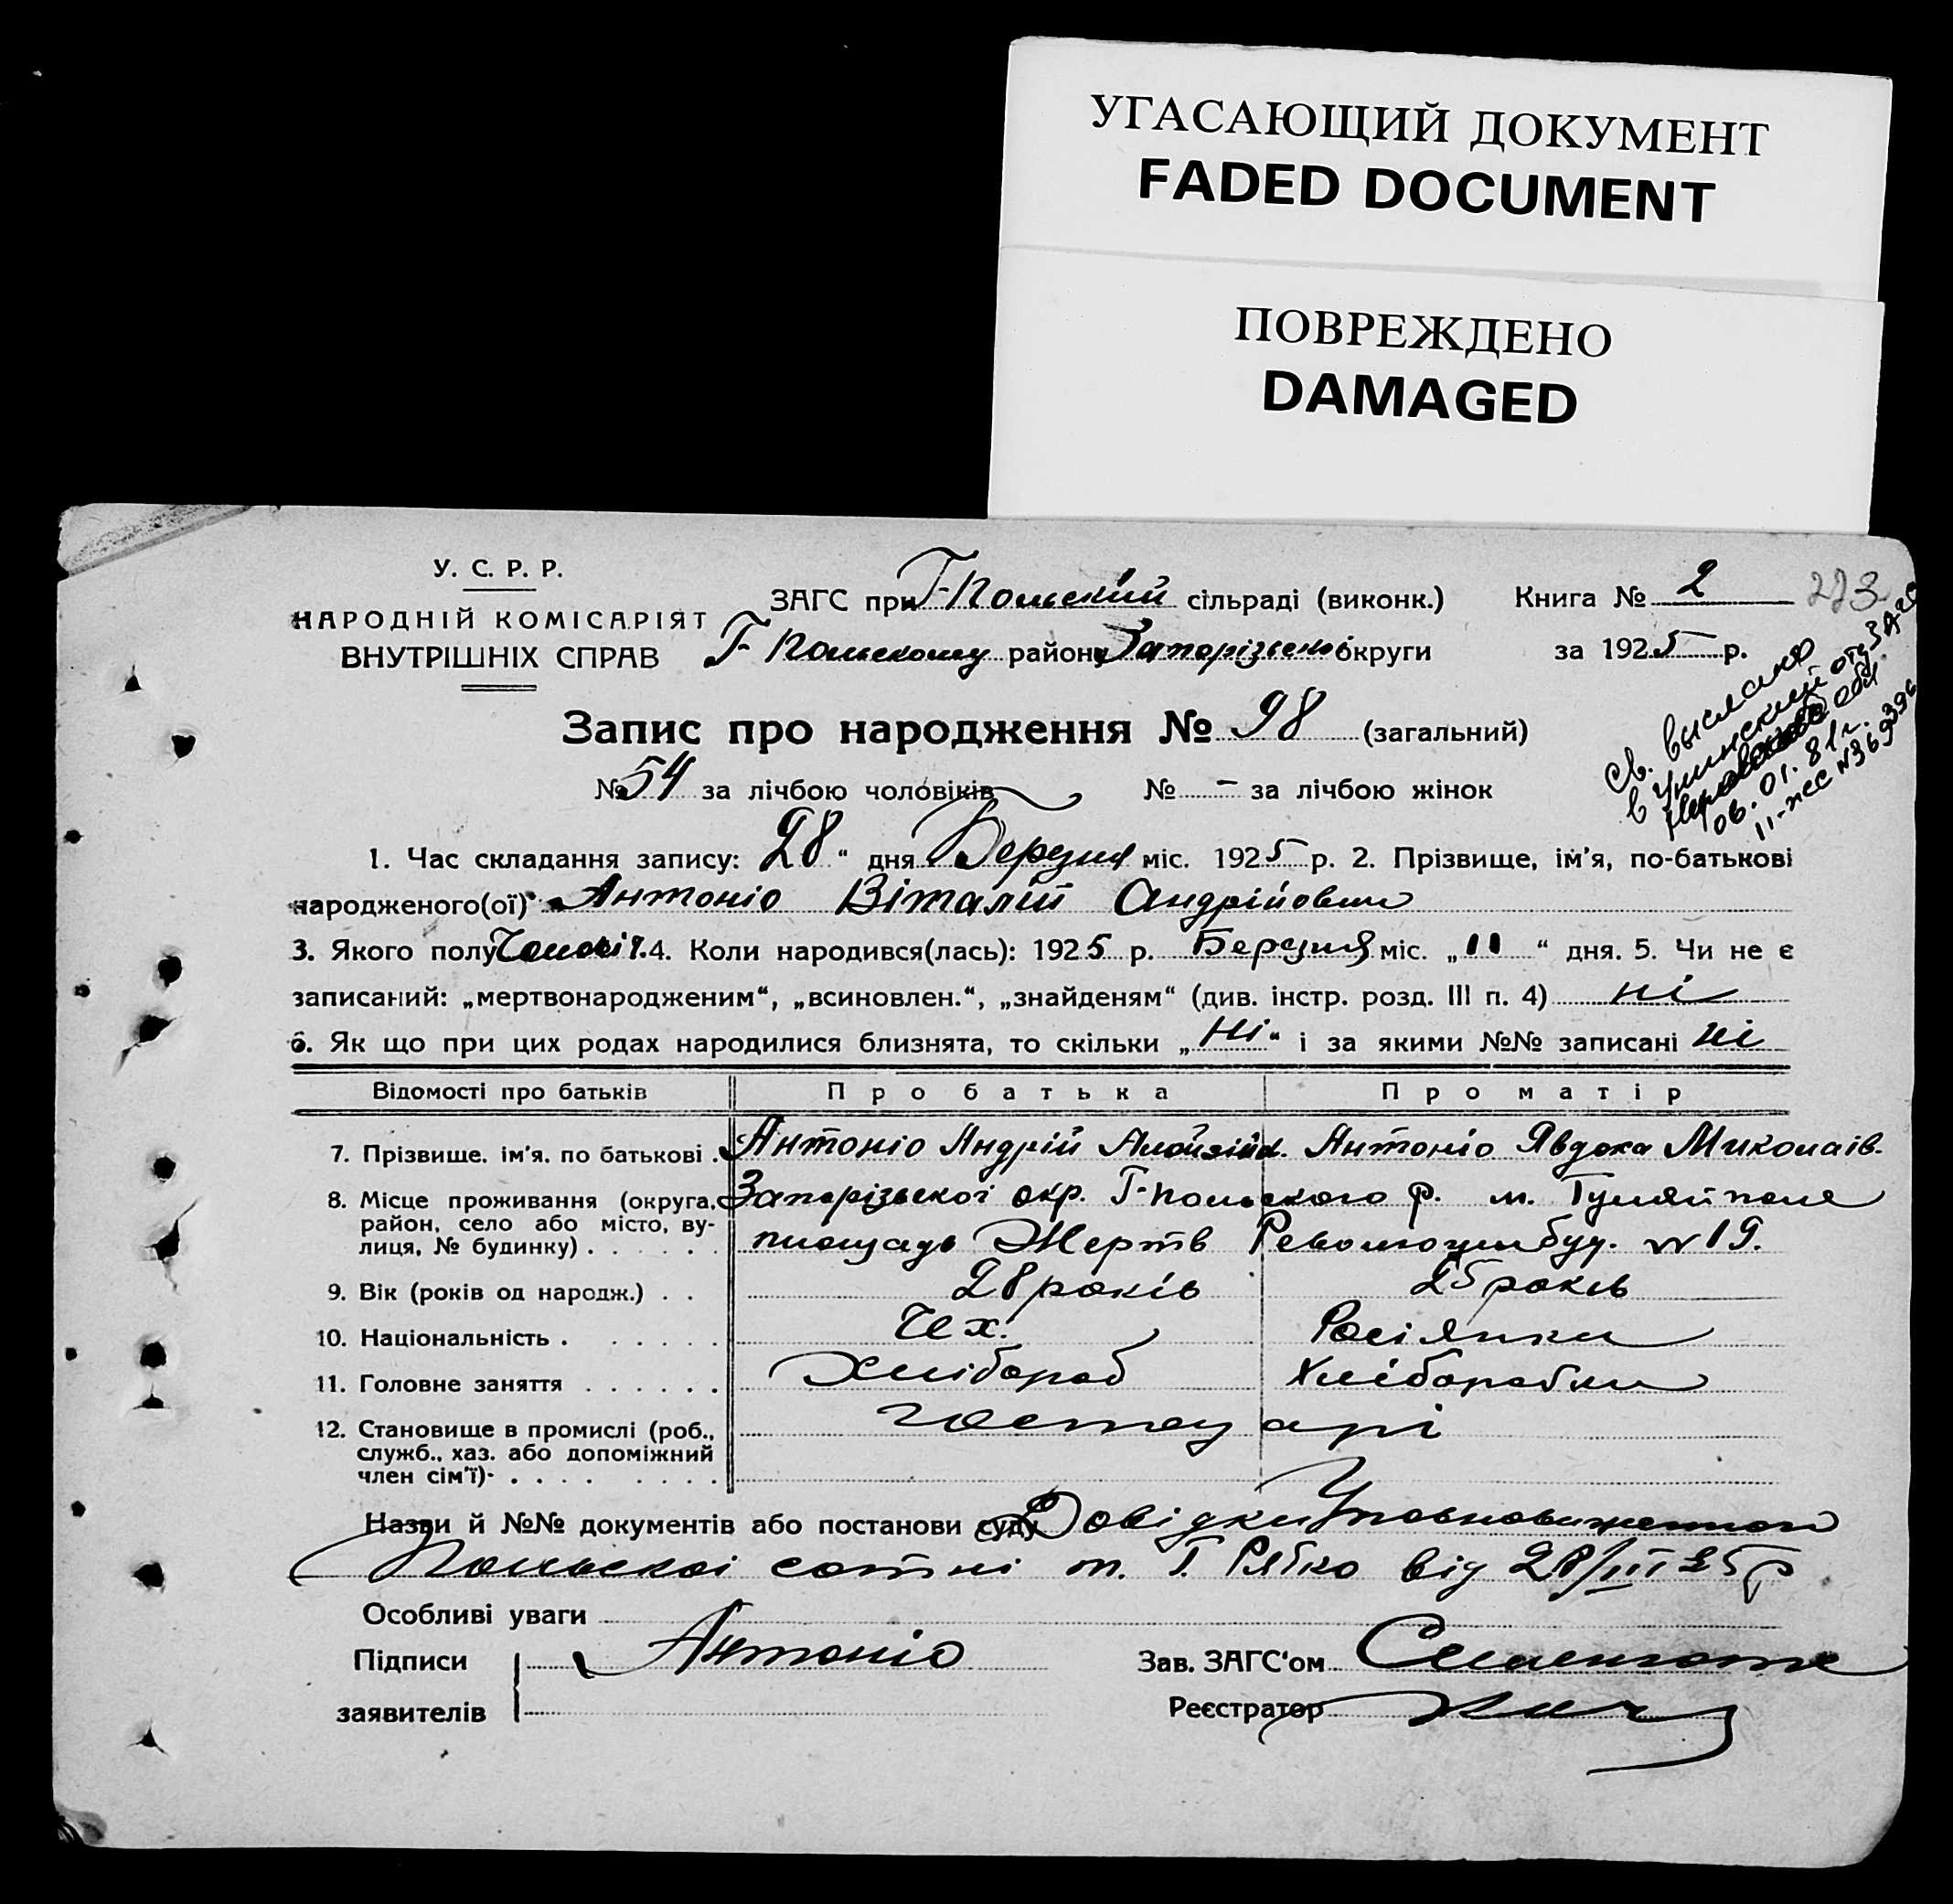 УГАСАЮЩИЙ ДОКУМЕНТ
FADED DOCUMENT
ПОВРЕЖДЕНО
DAMAGED
У. С. Р. Р.
НАРОДНІЙ КОМІСАРІЯТ
ВНУТРІШНІХ СПРАВ
ЗАГС при Г-Польский сільраді (виконк.)
Г-Польскому району Запорізької округи
Книга № 2
223
за 1925 р.
Св. выслано
в отд ЗАГС
обл.
06.01.81 г.
Запис про народження № 98 (загальний)
№ 54 за лічбою чоловіків № - за лічбою жінок
1. Час складання запису: 28 “ дня Березня міс. 1925 р. 2. Прізвище, ім'я, по-батькові
народженого(ої) Антоніо Віталій Андрійович
3. Якого полу Чоловіч. 4. Коли народився(лась): 1925 р. Березня міс. „ 11 “ дня. 5. Чи не є
записаний: „мертвонародженим“, „всиновлен.“, „знайденям“ (див. інстр. розд. III п. 4) ні
6. Як що при цих родах народилися близнята, то скільки „ Ні “ і за якими №№ записані ні
Відомості про батьків Про батька Про матір
7. Прізвище, ім'я, по батькові . Антоніо Андрій Алойзійов. Антоніо Явдоха Миколаів.
8. Місце проживання (округа, район, село або місто, вулиця, № будинку) . . . . . .
Запорізької окр. Г-польского р. м. Гуляйполе
площадь Жертв Революции буд. № 19.
9. Вік (років од народж.) . . 28 років 25 років
10. Національність . . . . . . Чех. Росіянка
11. Головне заняття . . . . . . Хлібороб Хліборобка
12. Становище в промислі (роб., служб., хаз. або допоміжний член сім'ї) . . . . . . . .
господарі
Назви й №№ документів або постанови суду Довідки Уповноваженного
Польскої сотні т. Г. Рябко від 28/III 25 р
Особливі уваги
Підписи заявителів
Антоніо
Зав. ЗАГС'ом
Реєстратор